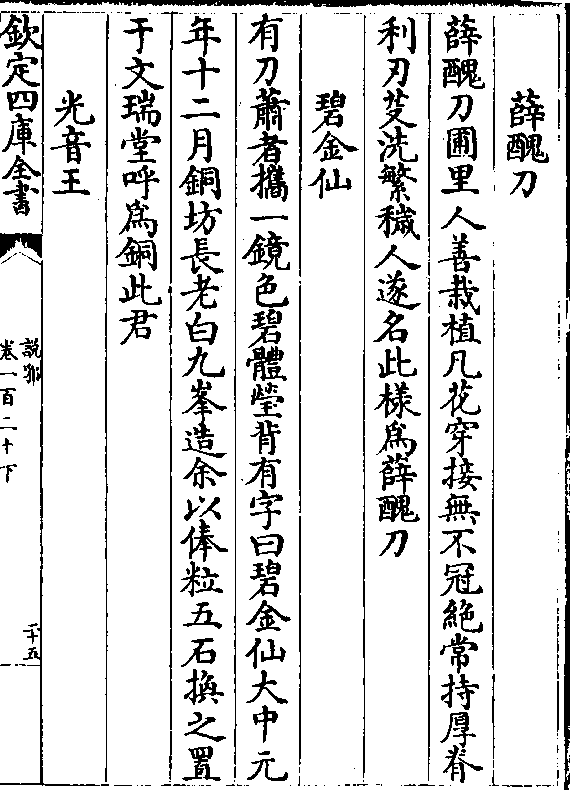 薛醜刀
薛醜刀圃里人善栽植凡花穿接無不冠絶常持厚脊
利刃芟洗繁穢人遂名此様爲薛醜刀
碧金仙
有刀蕭者攜一鏡色碧體瑩背有字曰碧金仙大中元
年十二月銅坊長老白九峯造余以俸粒五石換之置
于文瑞堂呼爲銅此君
光音王
欽定四庫全書
說郛
卷一百二十下
二十五